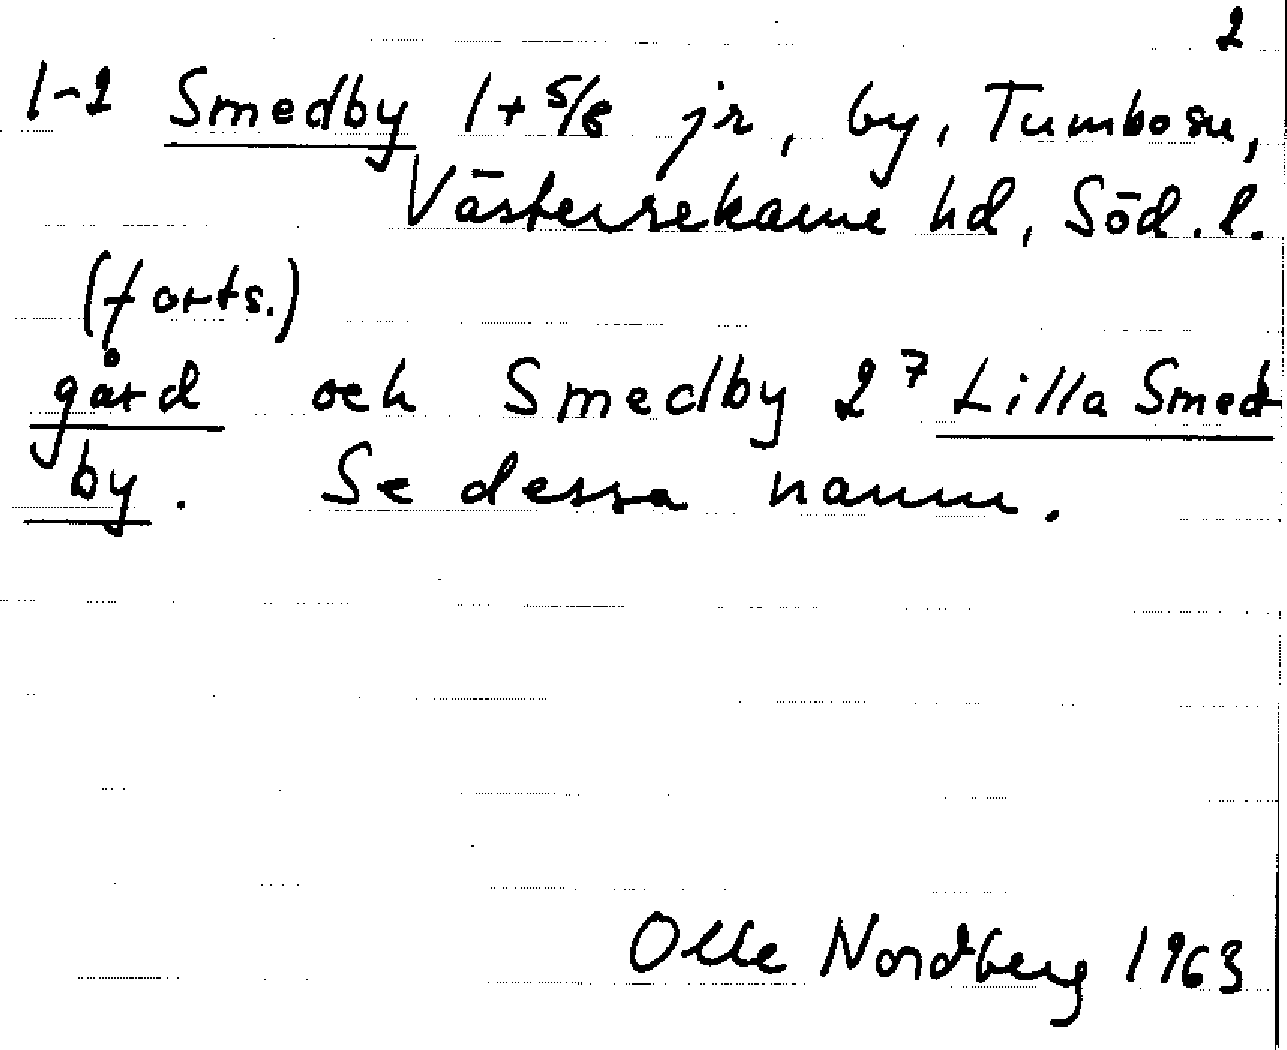 2
1-2 Smedby 1+5/8 jr, by, Tumbo sn,
Västerrekarne hd, Söd. l.
(forts.)
gård och Smedby 2⁷ Lilla Smed
by. Se dessa namn.
Olle Nordberg 1963